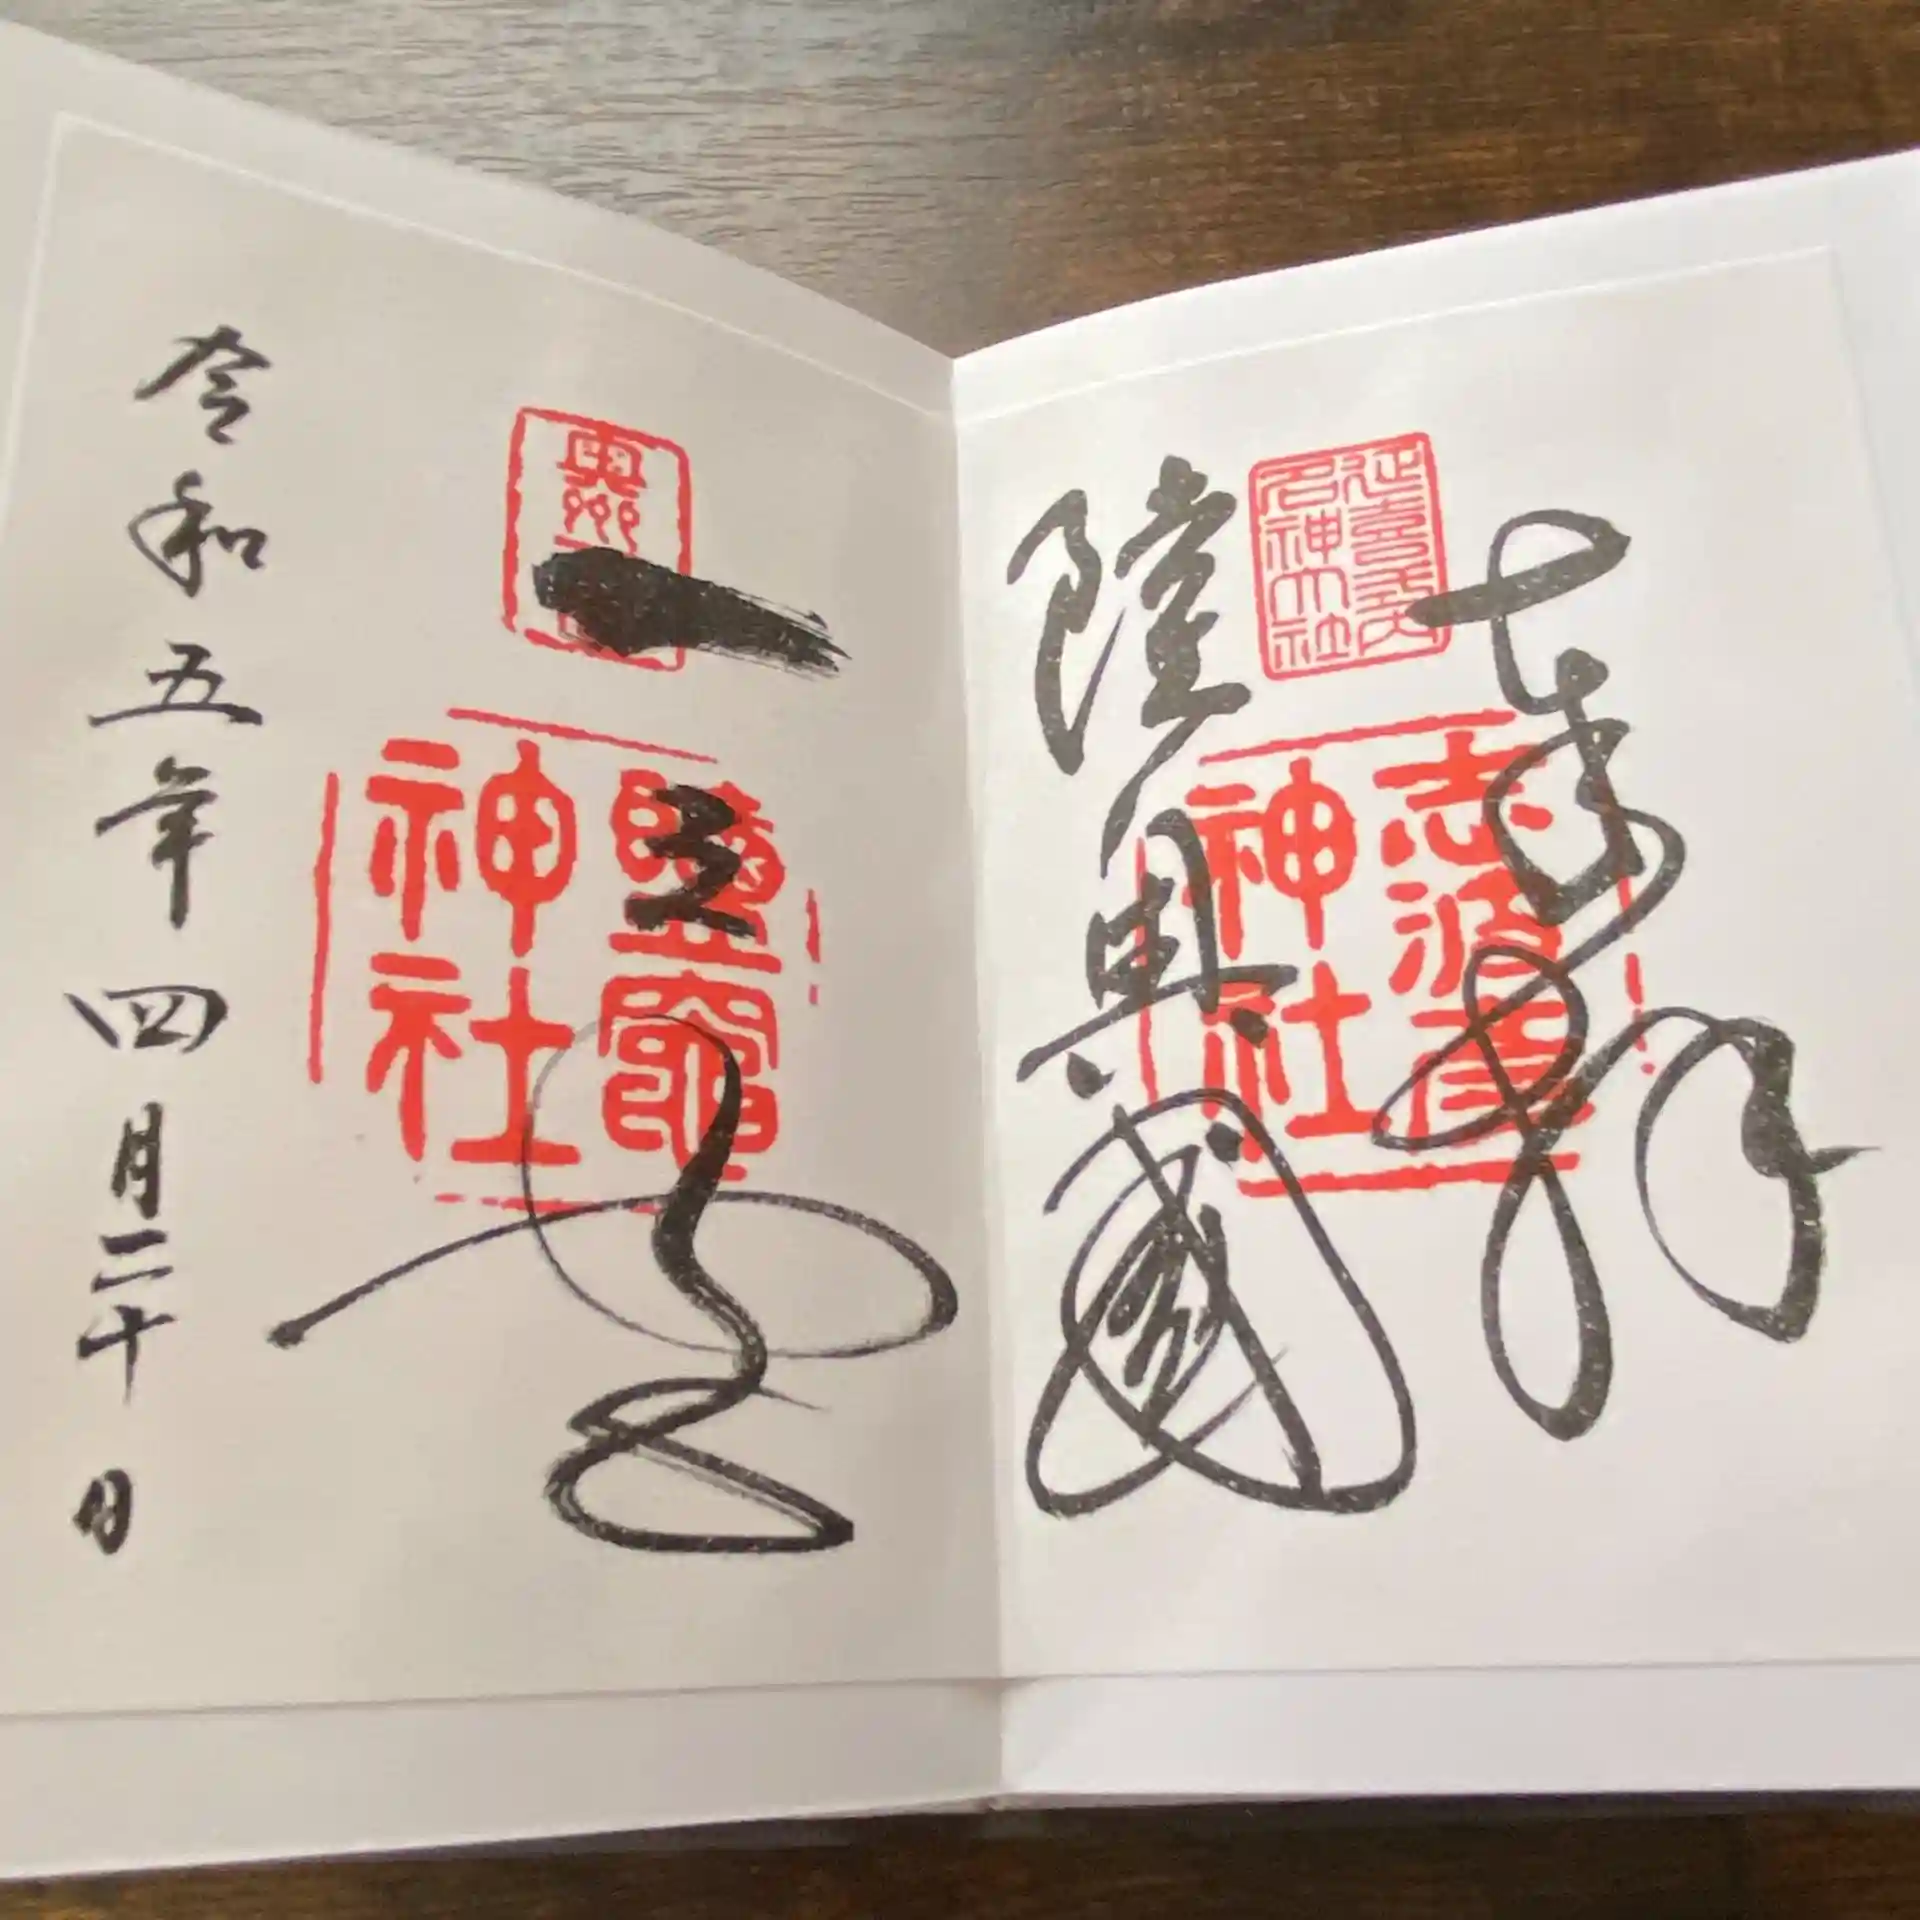 奉拝
延喜式内
名神大社
志波彦
神社
陸奥國
奥州
一之宮
鹽竈
神社
令和五年四月二十日